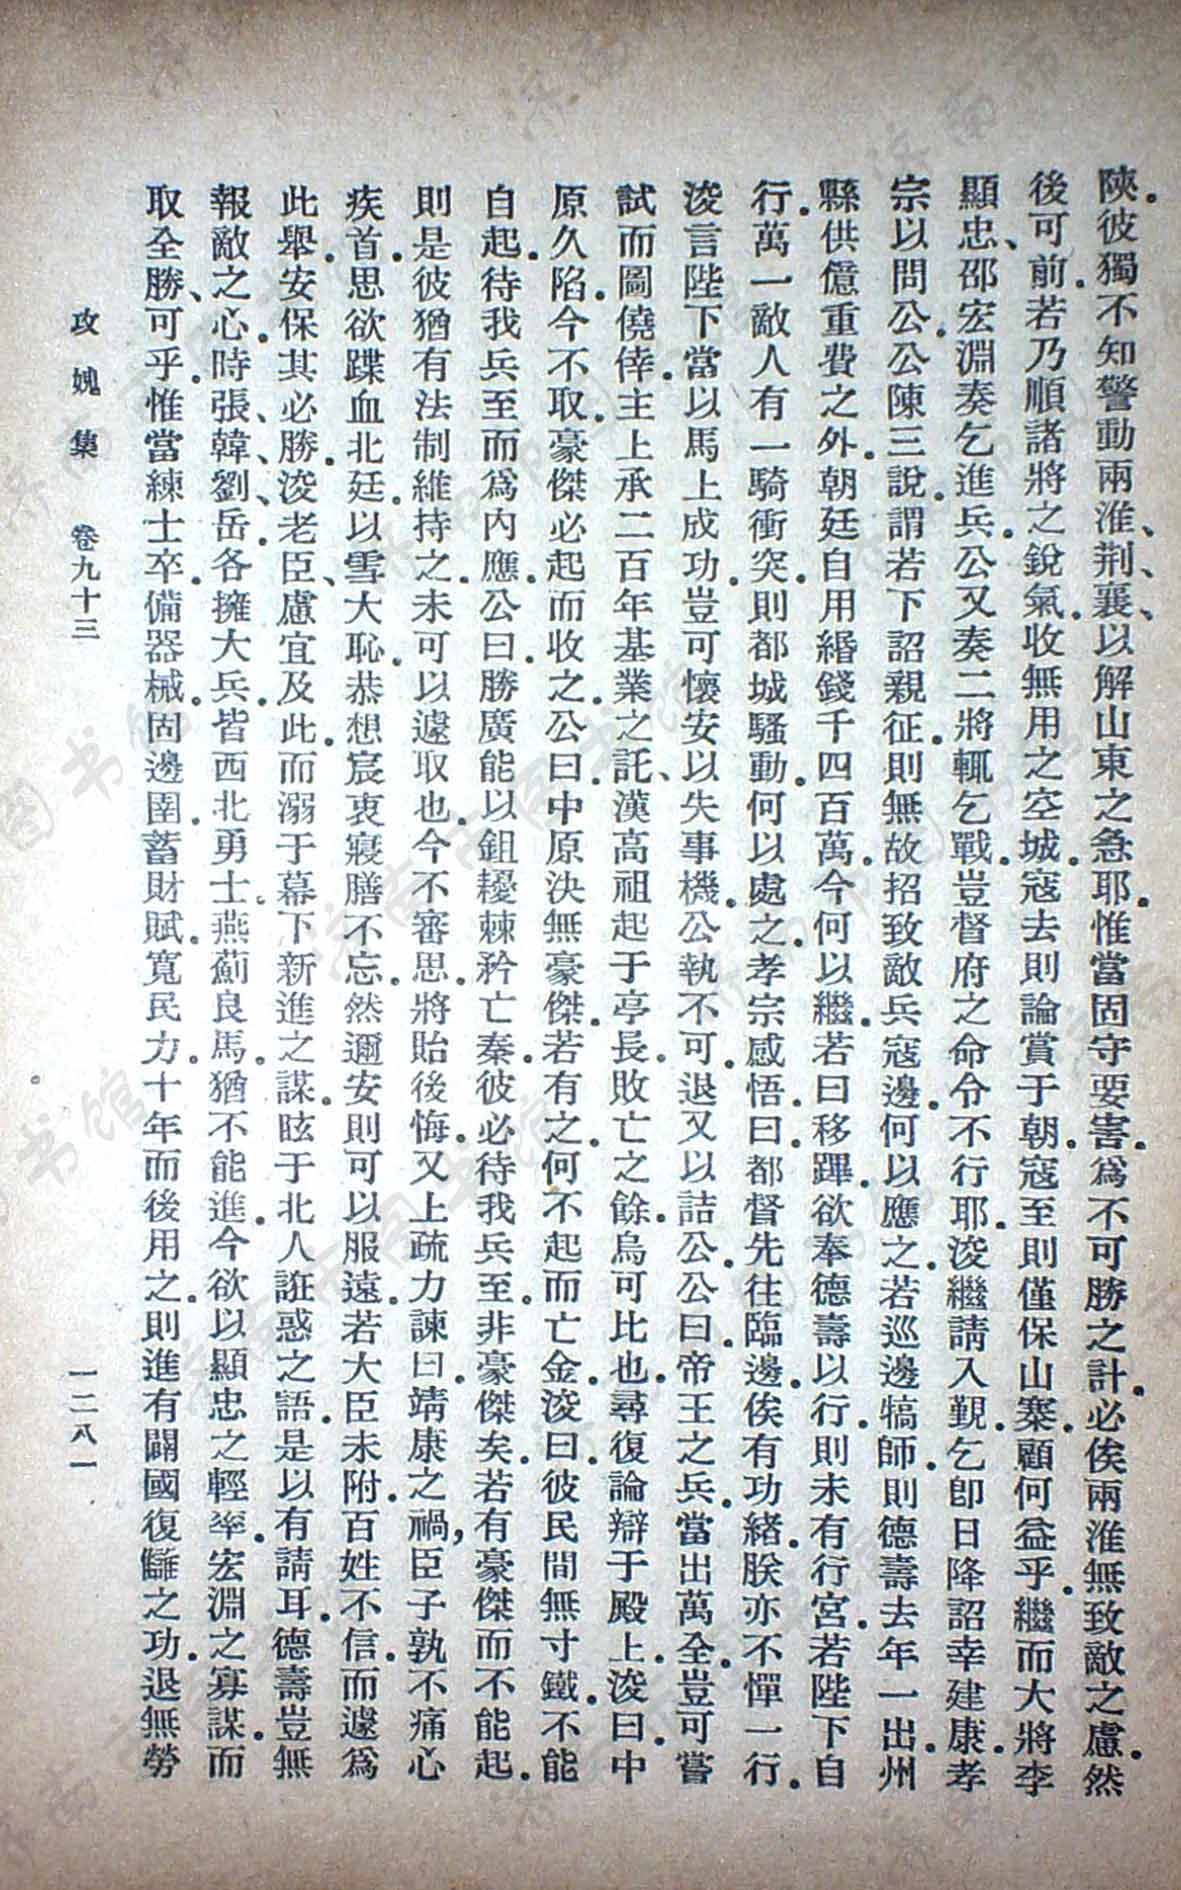 陝。彼獨不知警動兩淮、荆、襄、以解山東之急耶。惟當固守要害。爲不可勝之計。必俟兩淮無致敵之慮。然
後可前。若乃順諸將之銳氣。收無用之空城。寇去則論賞于朝。寇至則僅保山寨。顧何益乎。繼而大將李
顯忠、邵宏淵奏乞進兵。公又奏二將輒乞戰。豈督府之命令不行耶。浚繼請入覲。乞卽日降詔幸建康。孝
宗以問公。公陳三說。謂若下詔親征。則無故招致敵兵寇邊。何以應之。若巡邊犒師。則德壽去年一出。州
縣供億重費之外。朝廷自用緡錢千四百萬。今何以繼。若曰移蹕。欲奉德壽以行。則未有行宮。若陛下自
行。萬一敵人有一騎衝突。則都城騷動。何以處之。孝宗感悟。曰。都督先往臨邊。俟有功緒。朕亦不憚一行。
浚言陛下當以馬上成功。豈可懷安以失事機。公執不可。退又以詰公。公曰。帝王之兵。當出萬全。豈可嘗
試而圖僥倖。主上承二百年基業之託、漢高祖起于亭長。敗亡之餘。烏可比也。尋復論辯于殿上。浚曰。中
原久陷。今不取。豪傑必起而收之。公曰。中原決無豪傑。若有之。何不起而亡金。浚曰。彼民間無寸鐵。不能
自起。待我兵至而爲內應。公曰。勝廣能以鉏耰棘矜亡秦。彼必待我兵至。非豪傑矣。若有豪傑而不能起。
則是彼猶有法制維持之。未可以遽取也。今不審思。將貽後悔。又上疏力諫曰。靖康之禍，臣子孰不痛心
疾首。思欲蹀血北廷。以雪大恥。恭想宸衷寢膳不忘。然邇安則可以服遠。若大臣未附。百姓不信。而遽爲
此舉。安保其必勝。浚老臣、慮宜及此。而溺于幕下新進之謀。眩于北人誑惑之語。是以有請耳。德壽豈無
報敵之心。時張、韓、劉、岳。各擁大兵。皆西北勇士。燕薊良馬。猶不能進。今欲以顯忠之輕率。宏淵之寡謀。而
取全勝、可乎。惟當練士卒。備器械。固邊圉。蓄財賦。寬民力。十年而後用之。則進有闢國復讎之功。退無勞
攻媿集 卷九十三 一二八一